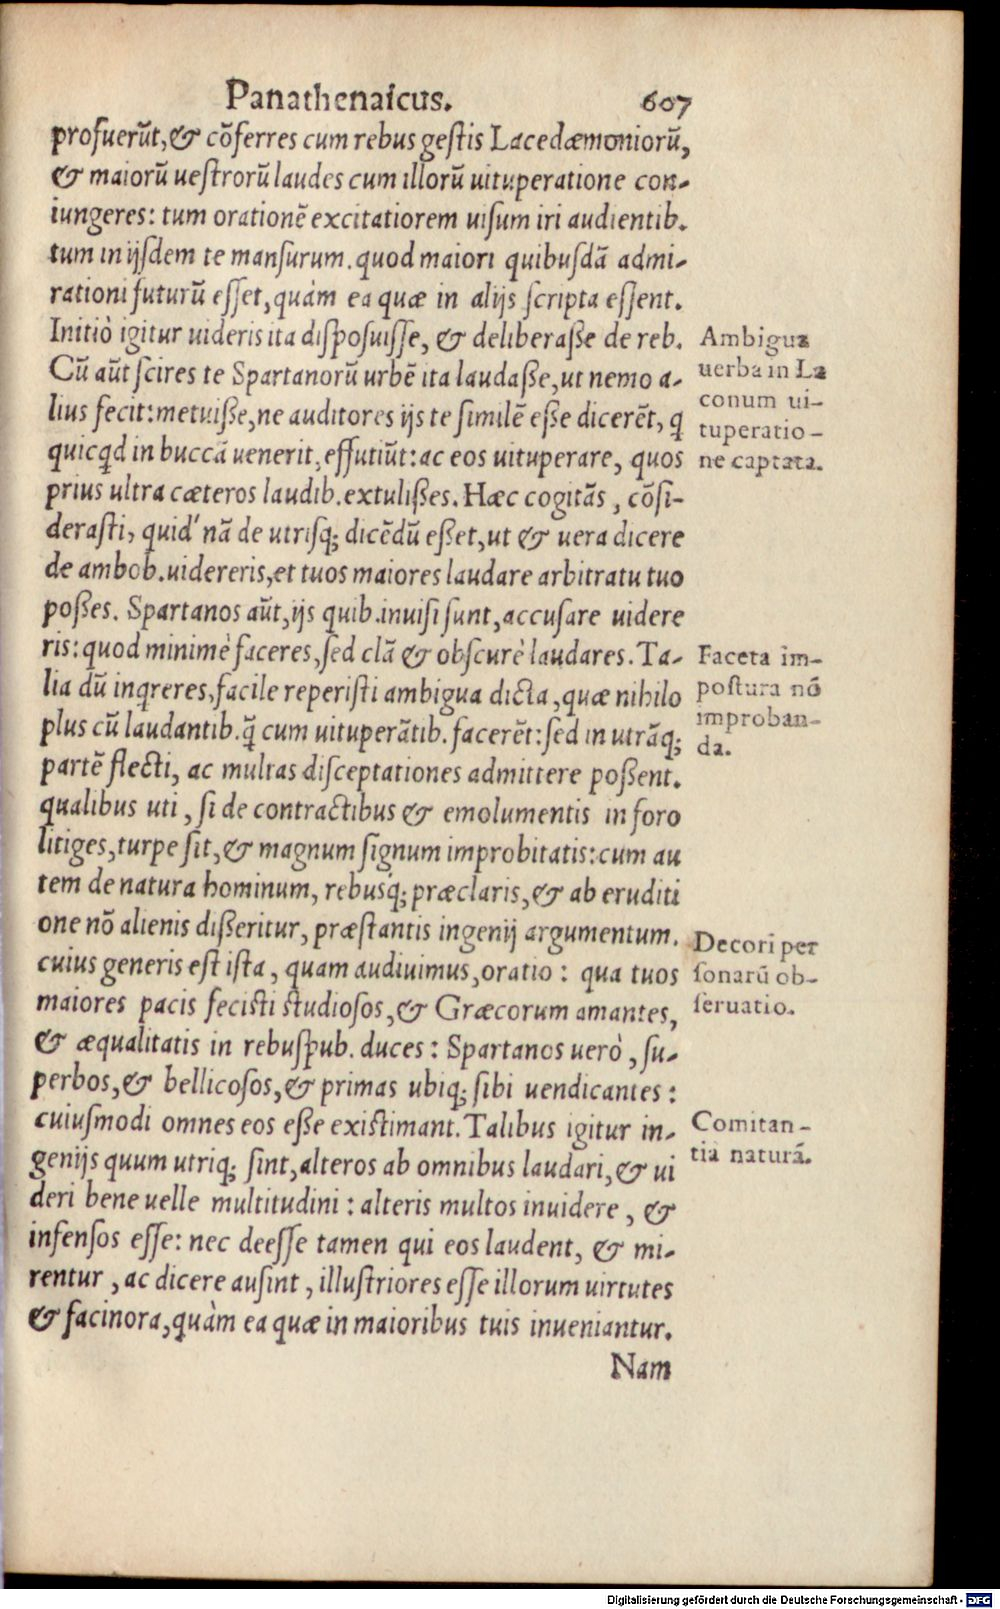 Panathenaicus. 607
profuerūt, & cōferres cum rebus gestis Lacedæmoniorū,
& maiorū uestrorū laudes cum illorū uituperatione con-
iungeres: tum orationē excitatiorem uisum iri audientib.
tum in ijsdem te mansurum. quod maiori quibusdā admi-
rationi futurū esset, quàm ea quæ in alijs scripta essent.
Initiò igitur uideris ita disposuisse, & deliberasse de reb.
Cū aūt scires te Spartanorū urbē ita laudasse, ut nemo a-
lius fecit: metuisse, ne auditores ijs te similē esse dicerēt, q
quicqd in buccā uenerit, effutiūt: ac eos uituperare, quos
prius ultra cæteros laudib. extulisses. Hæc cogitās, cōsi-
derasti, quid' nā de utrisq; dicēdū esset, ut & uera dicere
de ambob. uidereris, et tuos maiores laudare arbitratu tuo
posses. Spartanos aūt, ijs quib. inuisi sunt, accusare uidere
ris: quod minimè faceres, sed clā & obscurè laudares. Ta-
lia dū inqreres, facile reperisti ambigua dicta, quæ nihilo
plus cū laudantib. q̄ cum uituperātib. facerēt: sed in utrāq;
partē flecti, ac multas disceptationes admittere possent.
qualibus uti, si de contractibus & emolumentis in foro
litiges, turpe sit, & magnum signum improbitatis: cum au
tem de natura hominum, rebusq; præclaris, & ab eruditi
one nō alienis disseritur, præstantis ingenij argumentum.
cuius generis est ista, quam audiuimus, oratio: qua tuos
maiores pacis fecisti studiosos, & Græcorum amantes,
& æqualitatis in rebuspub. duces: Spartanos uerò, su-
perbos, & bellicosos, & primas ubiq; sibi uendicantes:
cuiusmodi omnes eos esse existimant. Talibus igitur in-
genijs quum utriq; sint, alteros ab omnibus laudari, & ui
deri bene uelle multitudini: alteris multos inuidere, &
infensos esse: nec deesse tamen qui eos laudent, & mi-
rentur, ac dicere ausint, illustriores esse illorum uirtutes
& facinora, quàm ea quæ in maioribus tuis inueniantur.
Nam
Ambigua
uerba in La
conum ui-
tuperatio-
ne captata.
Faceta im-
postura nō
improban-
da.
Decori per
sonarū ob-
seruatio.
Comitan-
tia naturā.
Digitalisierung gefördert durch die Deutsche Forschungsgemeinschaft - DFG